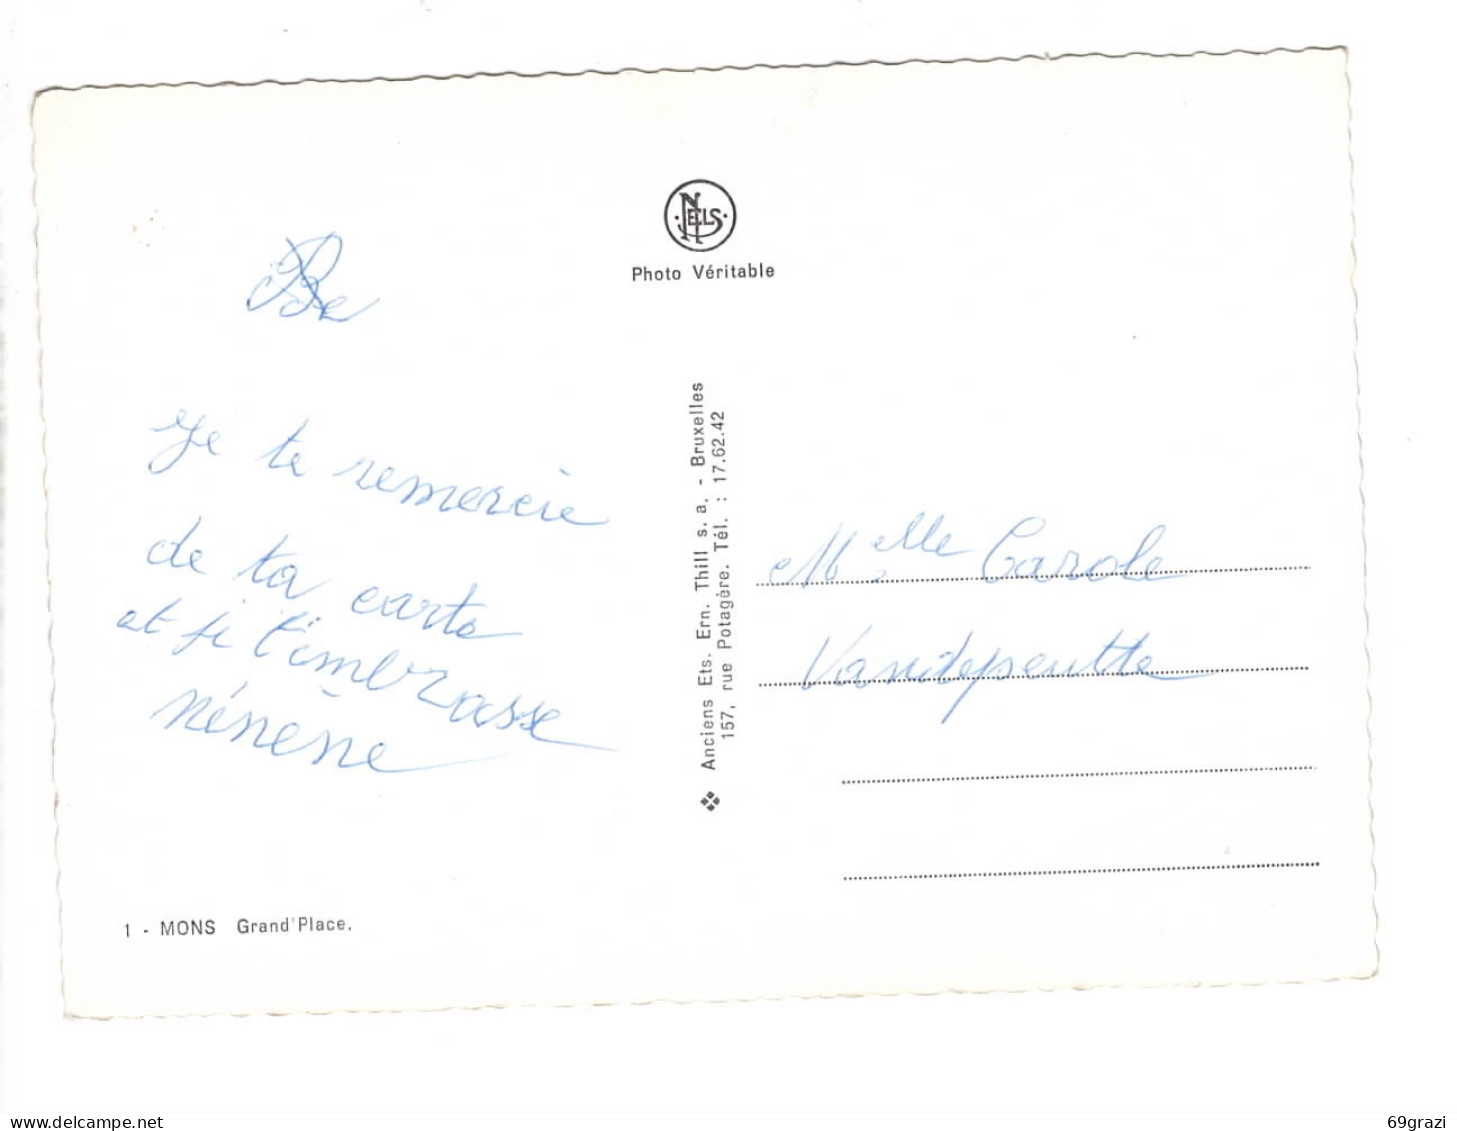 NELS
Photo Véritable
Je te remercie
de ta carte
et je t'embrasse
Nénène
Anciens Ets. Ern. Thill s. a. - Bruxelles
157, rue Potagère. Tél. : 17.62.42
Melle Carole
Vandepeutte
1 - MONS Grand'Place.
https://www.delcampe.net
69grazi